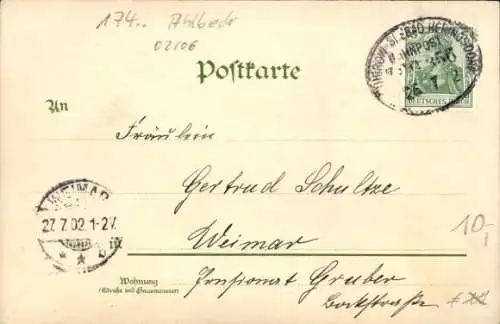 174.. Ahlbeck
02106
BAHNPOST
26 7 2
DEUTSCHES REICH
Postkarte
An
Fräulein
Gertrud Schultze
WEIMAR
27.7.02.1-2V.
in
Weimar
10,-
Wohnung
(Straße und Hausnummer)
Pensionat Gruber